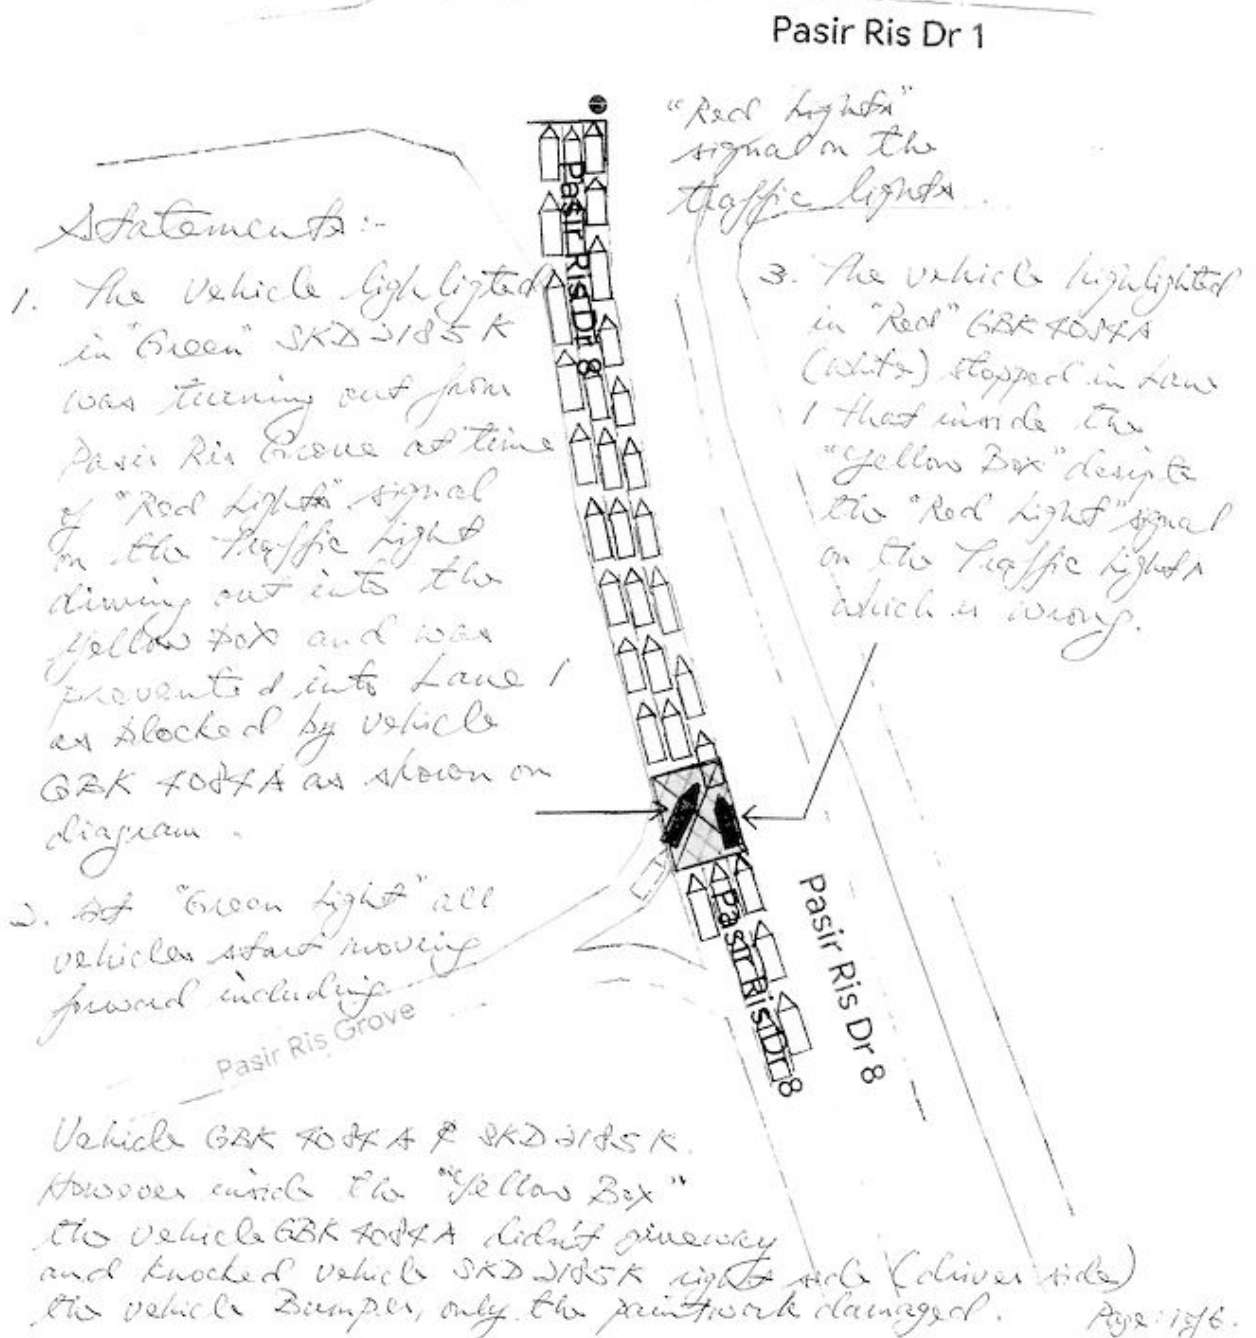 Pasir Ris Dr 1
"Red Lights"
signal on the
traffic lights.
Pasir Ris Dr 8
Statements:-
1. The vehicle highligted
in "Green" SKD 2185 K
was turning out from
Pasir Ris Grove at time
of "Red Lights" signal
on the Traffic Light
driving out into the
Yellow Box and was
prevented into Lane 1
as blocked by vehicle
GBK 4084A as shown on
diagram.
2. At "Green Light" all
vehicles start moving
forward including
3. The vehicle highlighted
in "Red" GBK 4084A
(white) stopped in Lane
1 that inside the
"Yellow Box" despite
the "Red Light" signal
on the Traffic Lights
which is wrong.
Pasir Ris Dr 8
Pasir Ris Dr 8
Pasir Ris Grove
Vehicle GBK 4084A & SKD 2185K.
However inside the "Yellow Box"
the vehicle GBK 4084A didn't giveway
and knocked vehicle SKD 2185K right side (driver side)
the vehicle Bumper, only the paintwork damaged.
Page: 1 of 6.